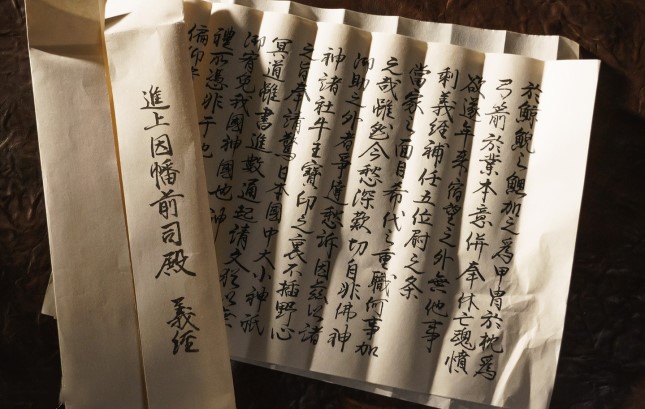 於鯨鯢之鰓加之為甲冑於枕為
弓箭於業本意併奉休亡魂憤
欲遂年来宿望之外無他事
剰義経補任五位尉之条
當家之面目希代之重職何事加
之哉雖然今愁深歎切自非佛神
御助之外者爭達愁訴因茲以諸
神諸社牛王寶印之裏不插野心
之旨奉請驚日本國中大小神祇
冥道雖書進數通起請文猶以無
御宥免我國神國也神
禮所憑非于他
偏仰
進上因幡前司殿 義経